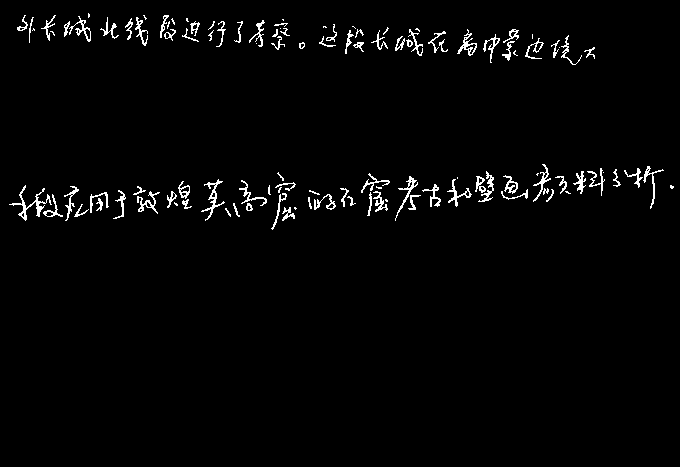 外长城北线段进行了考察。这段长城在离中蒙边境不
手段应用于敦煌莫高窟的石窟考古和壁画颜料分析.